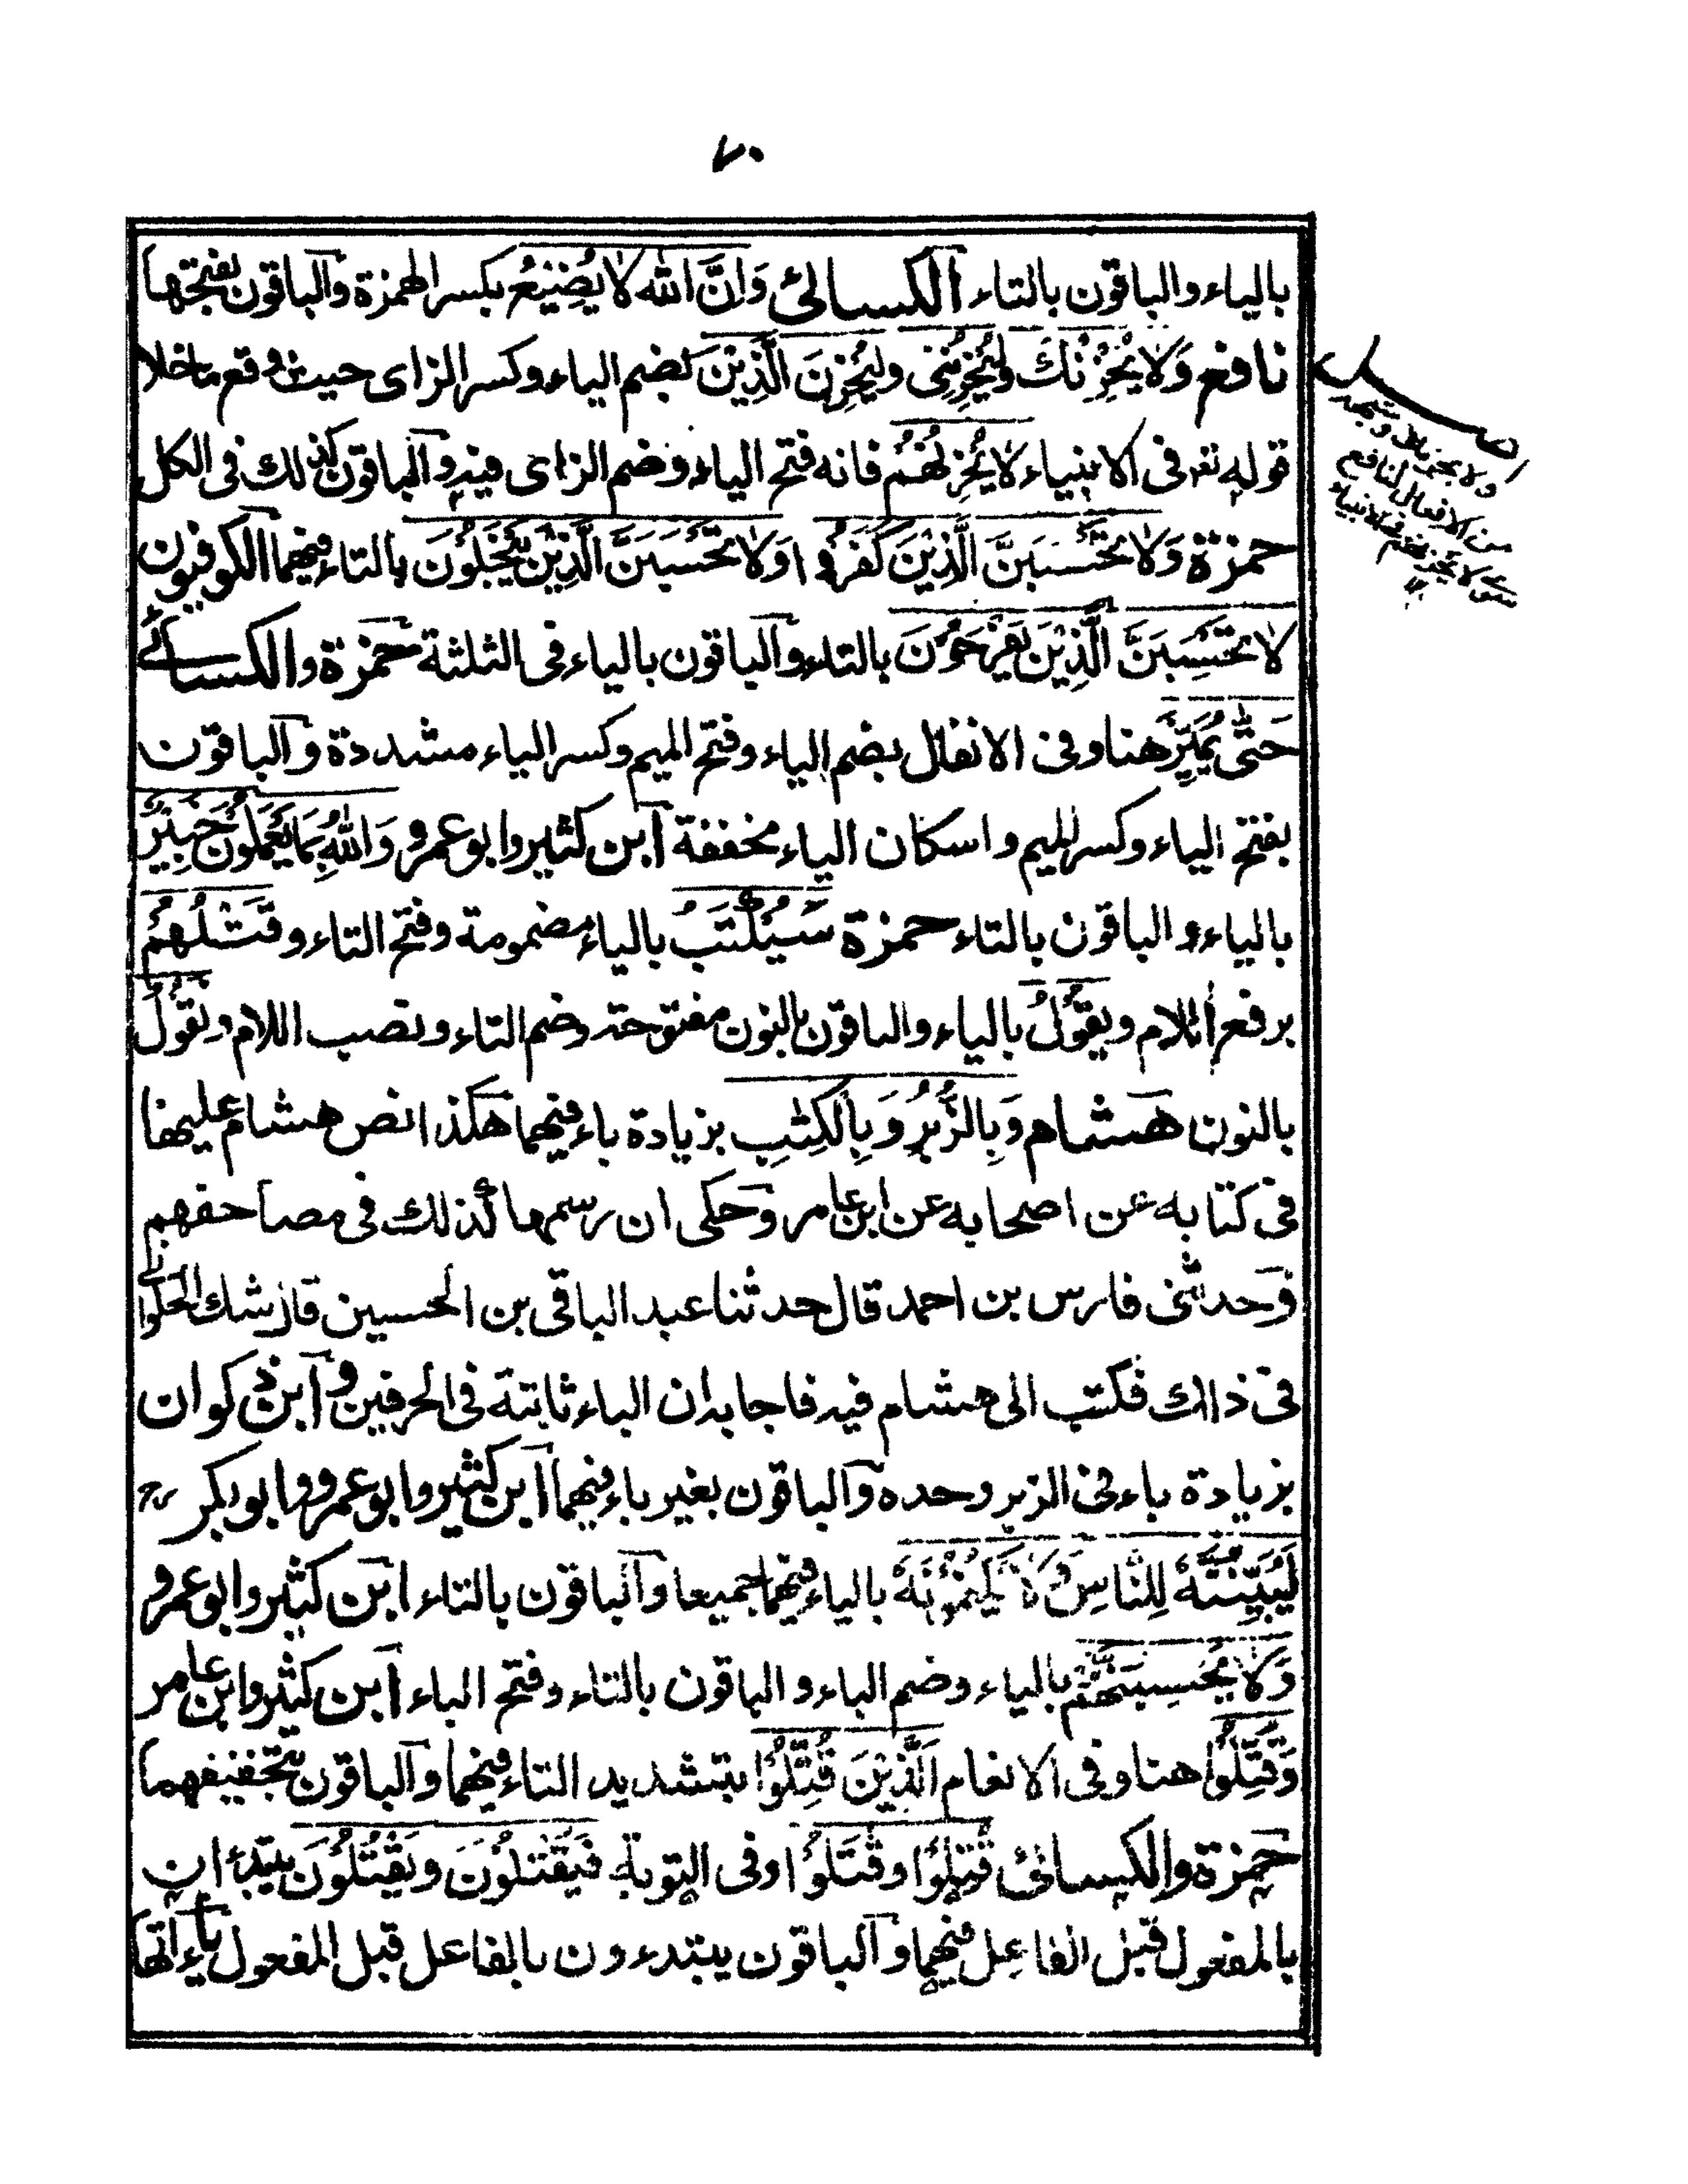 ٧٠
بالياء والباقون بالتاء الكسائى وَاِنَّ اللّٰهَ لَا يُضِيْعُ بكسر الهمزة والباقون بفتحها
نافع وَلَا يُحْزِنْكَ وليُحْزِنُنِى ولِيُحْزِنَ الَّذِيْنَ بضم الياء وكسر الزاى حيث وقع ماخلا
قوله تع فى الانبياء لَا يُحْزِنُهُمْ فانه فتح الياء وضم الزاى فيه والباقون كذلك فى الكل
حمزة وَلَا تَحْسَبَنَّ الَّذِيْنَ كَفَرُوا وَلَا تَحْسَبَنَّ الَّذِيْنَ يَبْخَلُوْنَ بالتاء فيهما الكوفيون
لَا تَحْسَبَنَّ الَّذِيْنَ يَفْرَحُوْنَ بالتاء والباقون بالياء فى الثلثة حمزة والكسائے
حَتّٰى يُمَيِّزَ هنا وفى الانفال بضم الياء وفتح الميم وكسر الياء مشددة والباقون
بفتح الياء وكسر الميم واسكان الياء مخففة ابن كثير وابو عمرو وَاللّٰهُ بِمَا يَعْمَلُوْنَ خَبِيْرٌ
بالياء والباقون بالتاء حمزة سَيُكْتَبُ بالياء مضمومة وفتح التاء و قَتْلُهُمْ
برفع اللام ويَقُوْلُ بالياء والباقون بالنون مفتوحة وضم التاء ونصب اللام ونَقُوْلُ
بالنون هشام وَبِالزُّبُرِ وَبِالْكِتٰبِ بزيادة باء فيهما هكذا نص هشام عليهما
فى كتابه عن اصحابه عن ابن عامر وحكى ان رسمهما كذلك فى مصاحفهم
وحدثنى فارس بن احمد قال حدثنا عبد الباقى بن الحسين قال شك الحلوانى
فى ذالك فكتب الى هشام فيه فاجابه ان الباء ثابتة فى الحرفين وابن ذكوان
بزيادة باء فى الزبر وحده والباقون بغير باء فيهما ابن كثير وابو عمرو وابو بكر
لَيُبَيِّنُنَّهٗ لِلنَّاسِ وَلَا يَكْتُمُوْنَهٗ بالياء فيهما جميعا والباقون بالتاء ابن كثير وابو عمرو
وَلَا يَحْسَبَنَّهُمْ بالياء وضم الباء والباقون بالتاء وفتح الباء ابن كثير وابن عامر
وَقُتِّلُوْا هنا وفى الانعام اَلَّذِيْنَ قُتِّلُوْا بتشديد التاء فيهما والباقون بتخفيفهما
حمزة والكسائى قُتِلُوْا وقَتَلُوْا وفى التوبة فَيُقْتَلُوْنَ ويَقْتُلُوْنَ يبتدء ان
بالمفعول قبل الفاعل فيهما والباقون يبتدءون بالفاعل قبل المفعول ياءاتها
ولا يحزنك وشبهه
من الافعال لنافع
سوى لا يحزنهم فى الانبياء